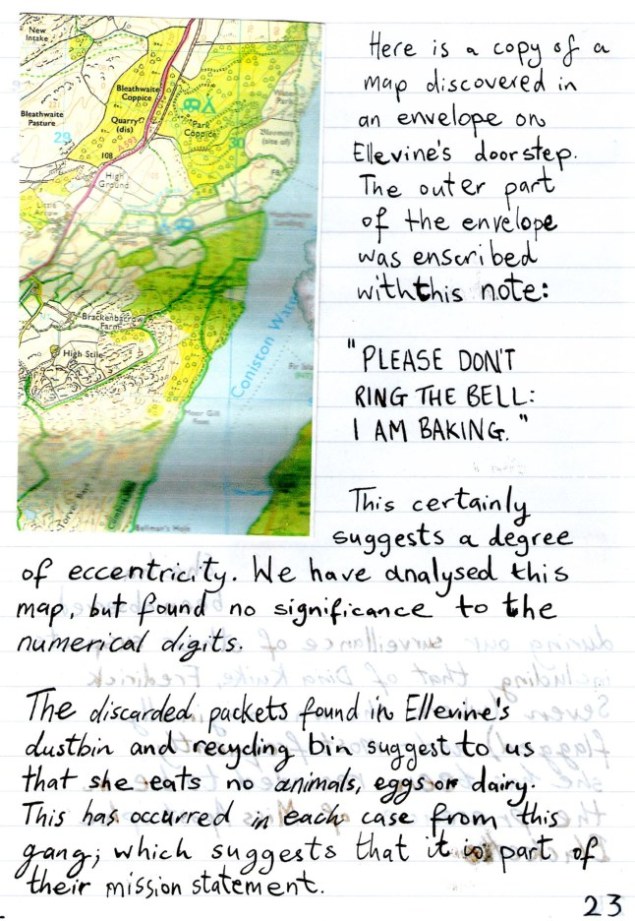 New
Intake
Bleathwaite
Coppice
Bleathwaite
Pasture
29
Quarry
(dis)
Park
Coppice
30
108
High
Ground
Brackenbarrow
Farm
High Stile
Coniston Water
Moor Gill
Foot
Here is a copy of a
map discovered in
an envelope on
Ellevine's doorstep.
The outer part
of the envelope
was enscribed
with this note:
"PLEASE DON'T
RING THE BELL:
I AM BAKING."
This certainly
suggests a degree
of eccentricity. We have analysed this
map, but found no significance to the
numerical digits.
The discarded packets found in Ellevine's
dustbin and recycling bin suggest to us
that she eats no animals, eggs or dairy.
This has occurred in each case from this
gang; which suggests that it is part of
their mission statement.
23